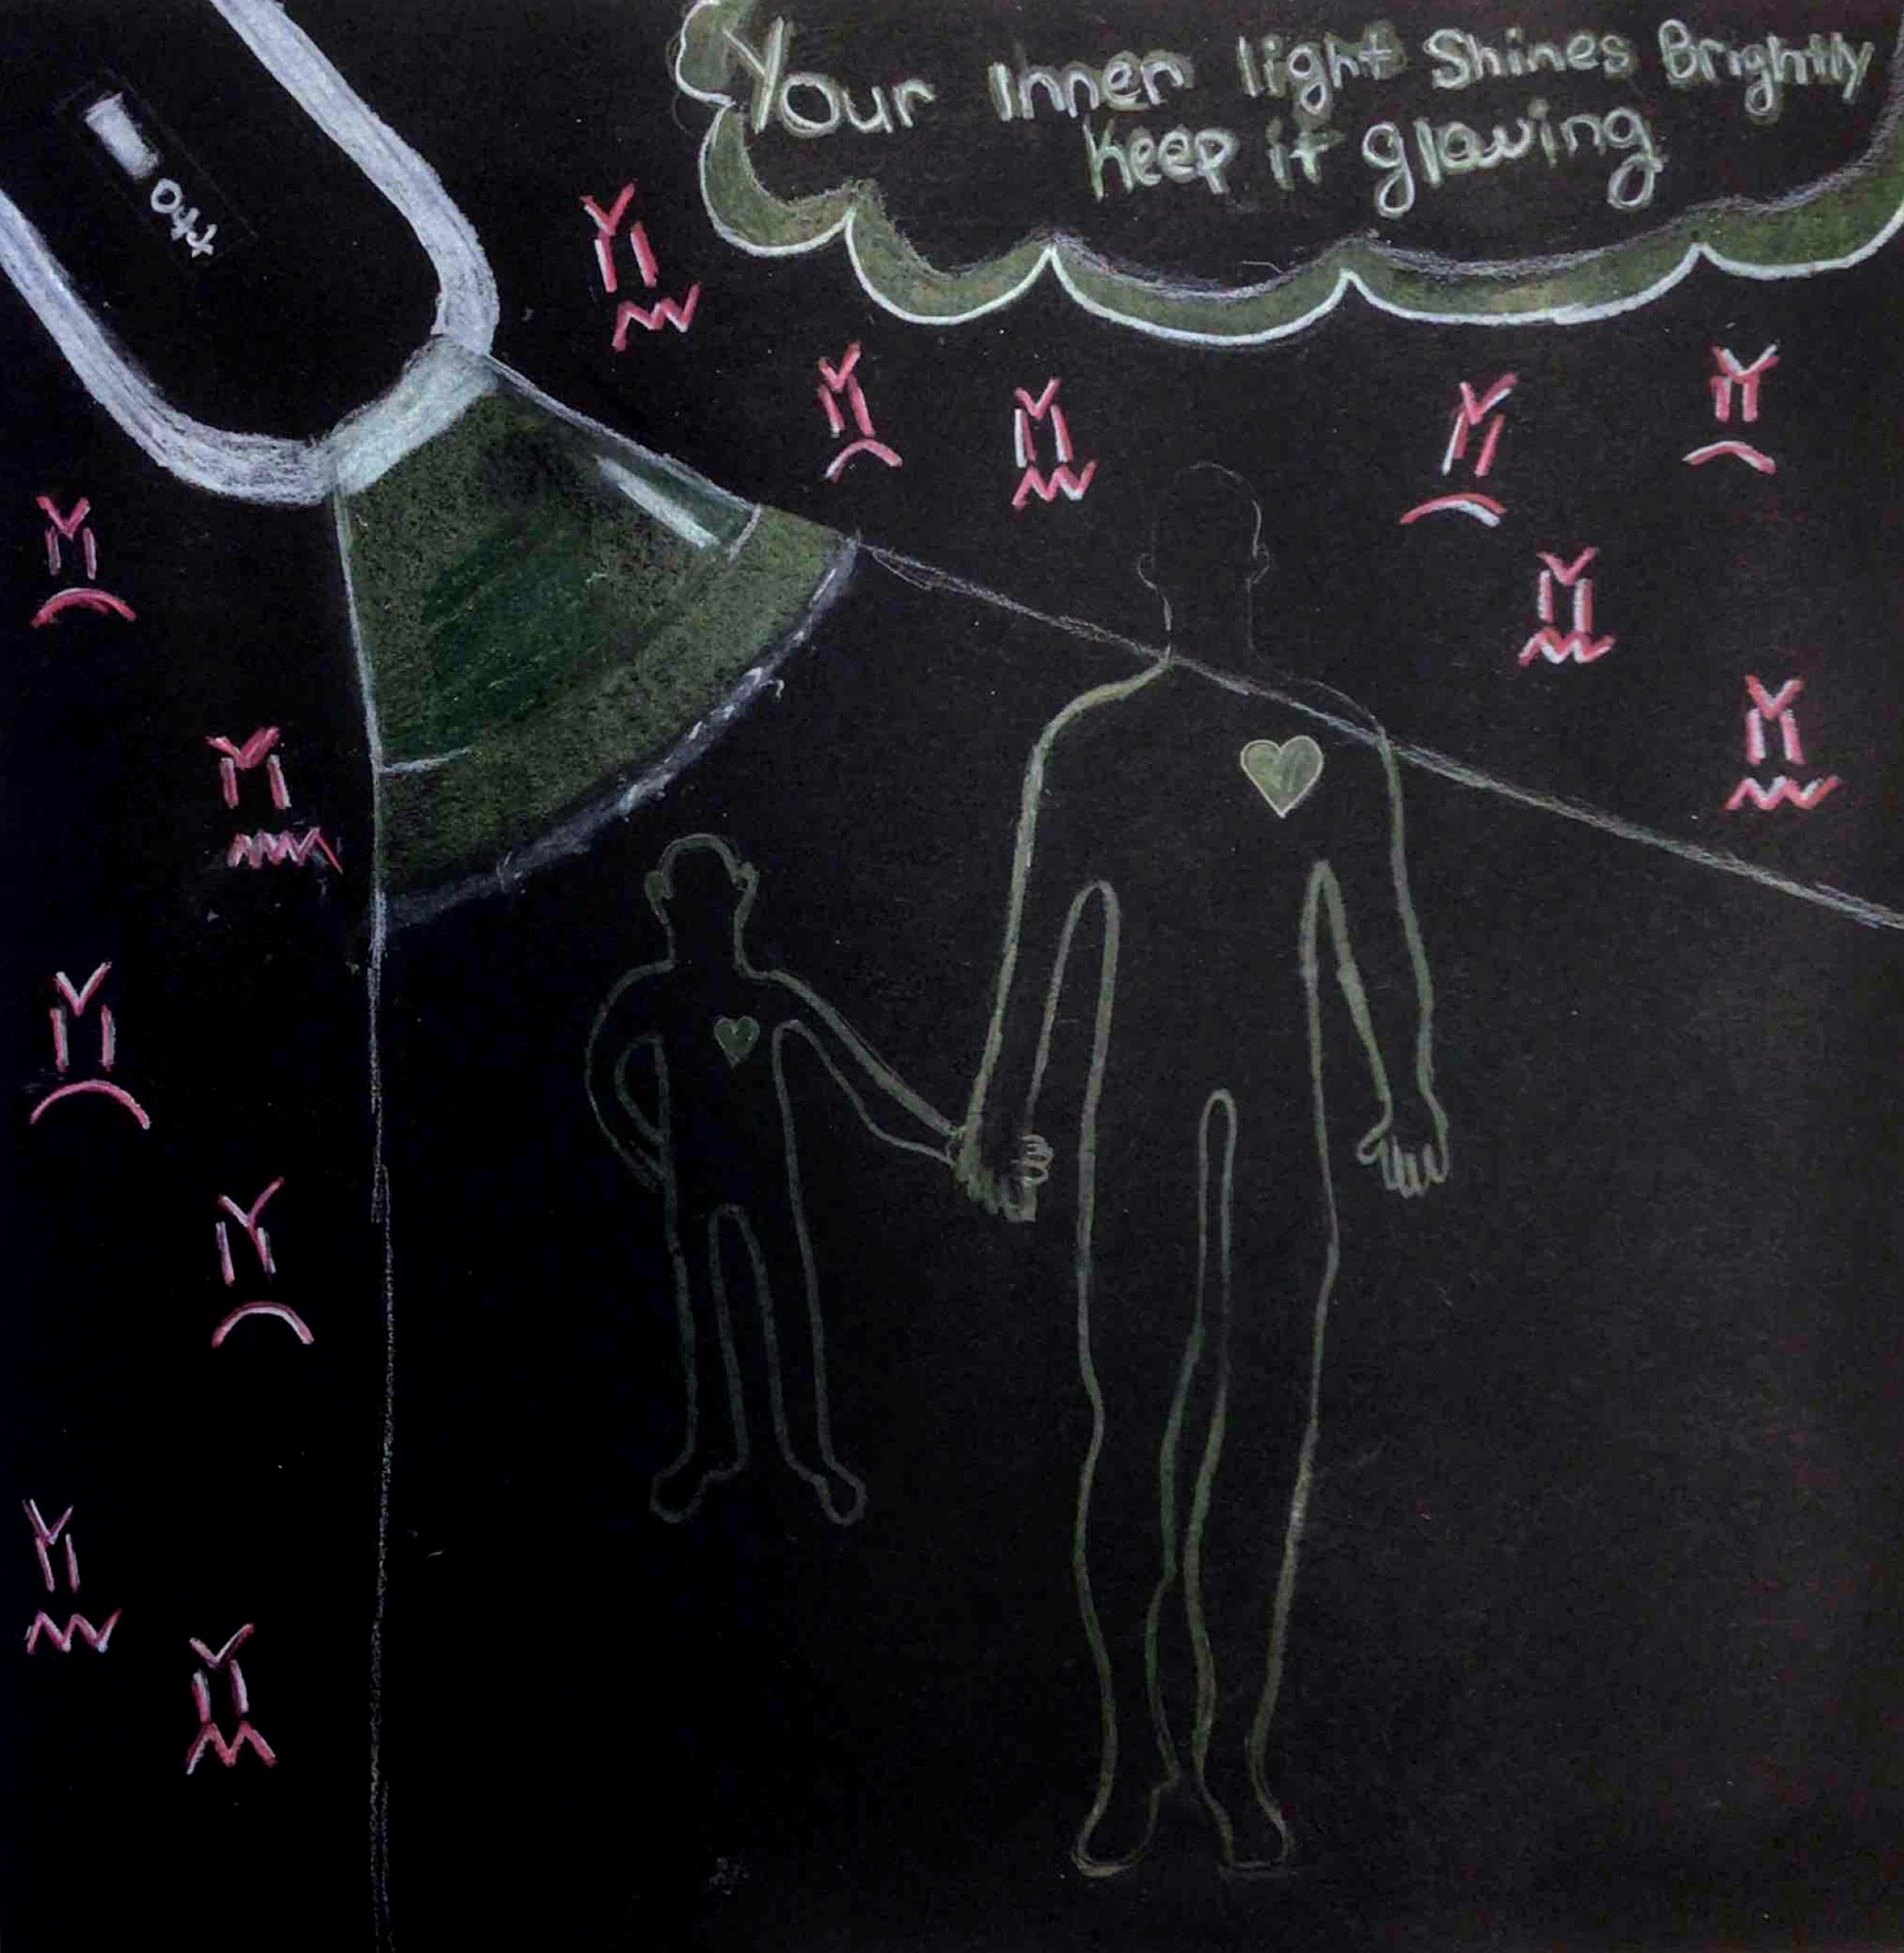 Your Inner light Shines Brightly
Keep it glowing